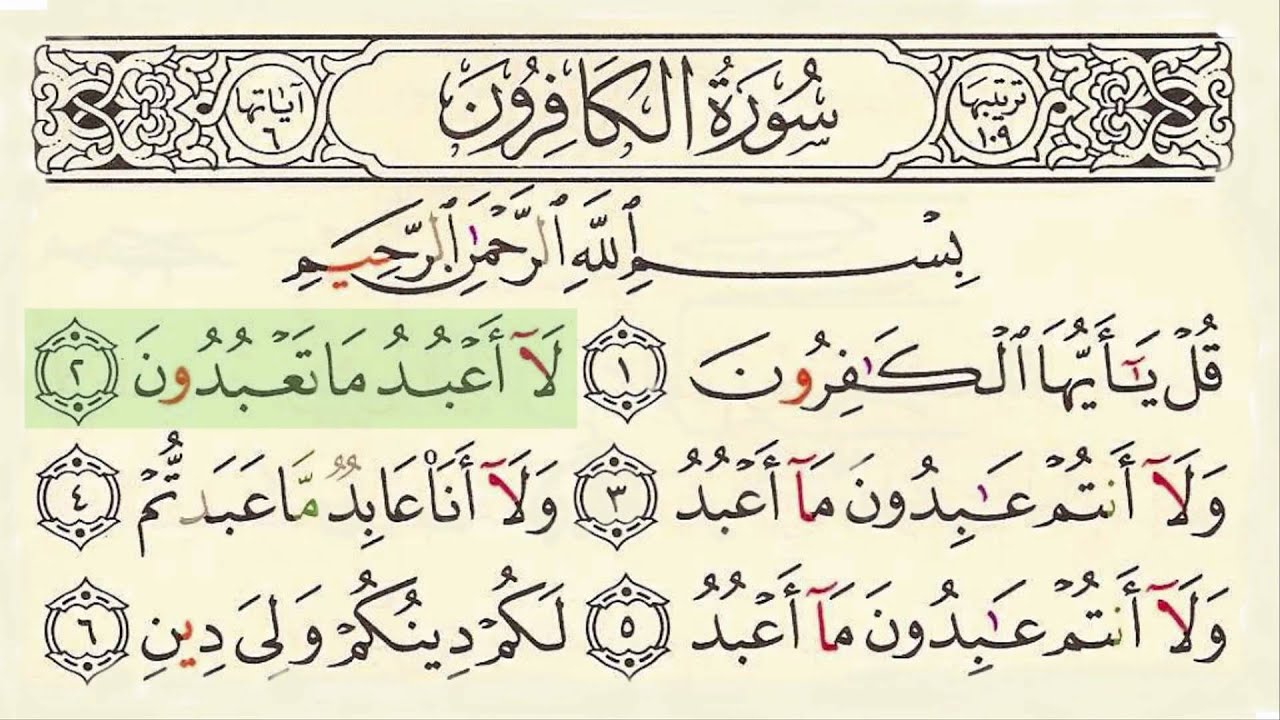 ترتيبها ١٠٩ سُورَةُ الكَافِرُونَ آيَاتها ٦
بِسْمِ ٱللَّهِ ٱلرَّحْمَٰنِ ٱلرَّحِيمِ
قُلْ يَٰٓأَيُّهَا ٱلْكَٰفِرُونَ ١ لَآ أَعْبُدُ مَا تَعْبُدُونَ ٢
وَلَآ أَنتُمْ عَٰبِدُونَ مَآ أَعْبُدُ ٣ وَلَآ أَنَا۠ عَابِدٌ مَّا عَبَدتُّمْ ٤
وَلَآ أَنتُمْ عَٰبِدُونَ مَآ أَعْبُدُ ٥ لَكُمْ دِينُكُمْ وَلِىَ دِينِ ٦